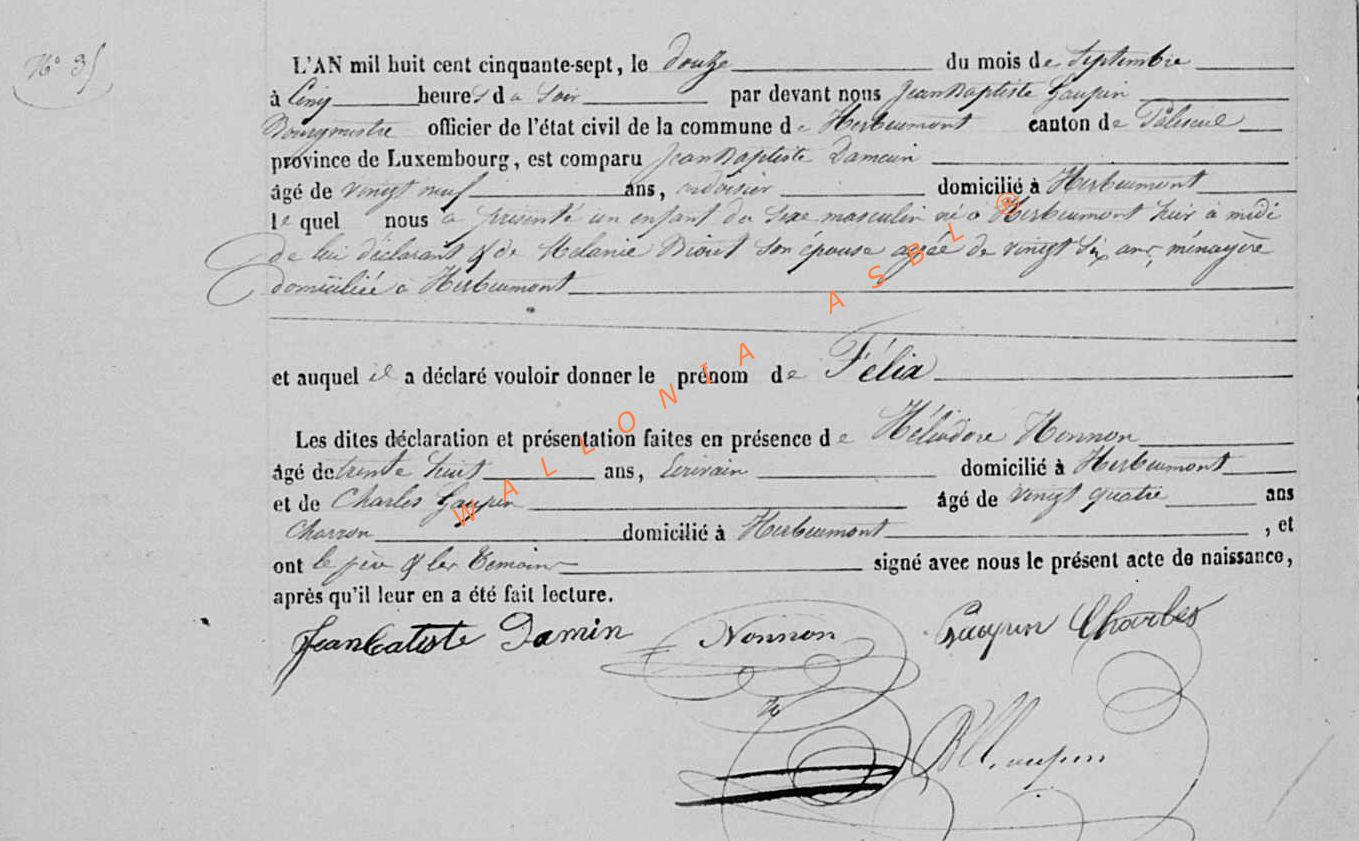 N° 35
L'AN mil huit cent cinquante-sept, le douze du mois de Septembre
à Cinq heures du Soir par devant nous Jean Baptiste Gaupin
Bourgmestre officier de l'état civil de la commune de Herbeumont canton de Paliseul
province de Luxembourg, est comparu Jean Baptiste Damein
âgé de vingt neuf ans, ardoisier domicilié à Herbeumont
lequel nous a présenté un enfant du sexe masculin né a Herbeumont hier à midi
de lui déclarant & de Mélanie son épouse agée de vingt six ans, ménagère
domiciliée a Herbeumont
et auquel il a déclaré vouloir donner le prénom de Félix
Les dites déclaration et présentation faites en présence de Héliodore Nonnon
âgé de trente huit ans, Ecrivain domicilié à Herbeumont
et de Charles Gaupin âgé de vingt quatre ans
Charron domicilié à Herbeumont , et
ont le père & les témoins signé avec nous le présent acte de naissance,
après qu'il leur en a été fait lecture.
Jean batiste Damin Nonnon Gaupin Charles
WALLONIA ASBL ®